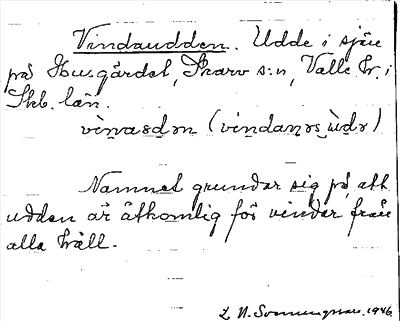 Vindaudden. Udde i sjön
på Husgärdet, Skarv s:n, Valle hr. i
Skb. län.
(vindanəs ùdə)
Namnet grundar sig på, att
udden är åtkomlig för vindar från
alla håll.
1946